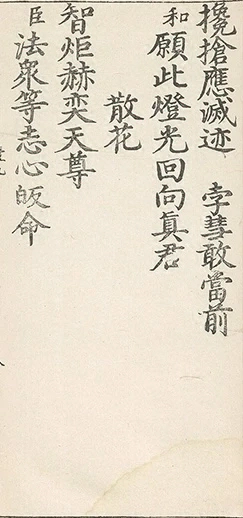 攙搶應滅迹　孛彗敢當前
和願此燈光回向真君
散花
智炬赫奕天尊
臣法衆等志心皈命